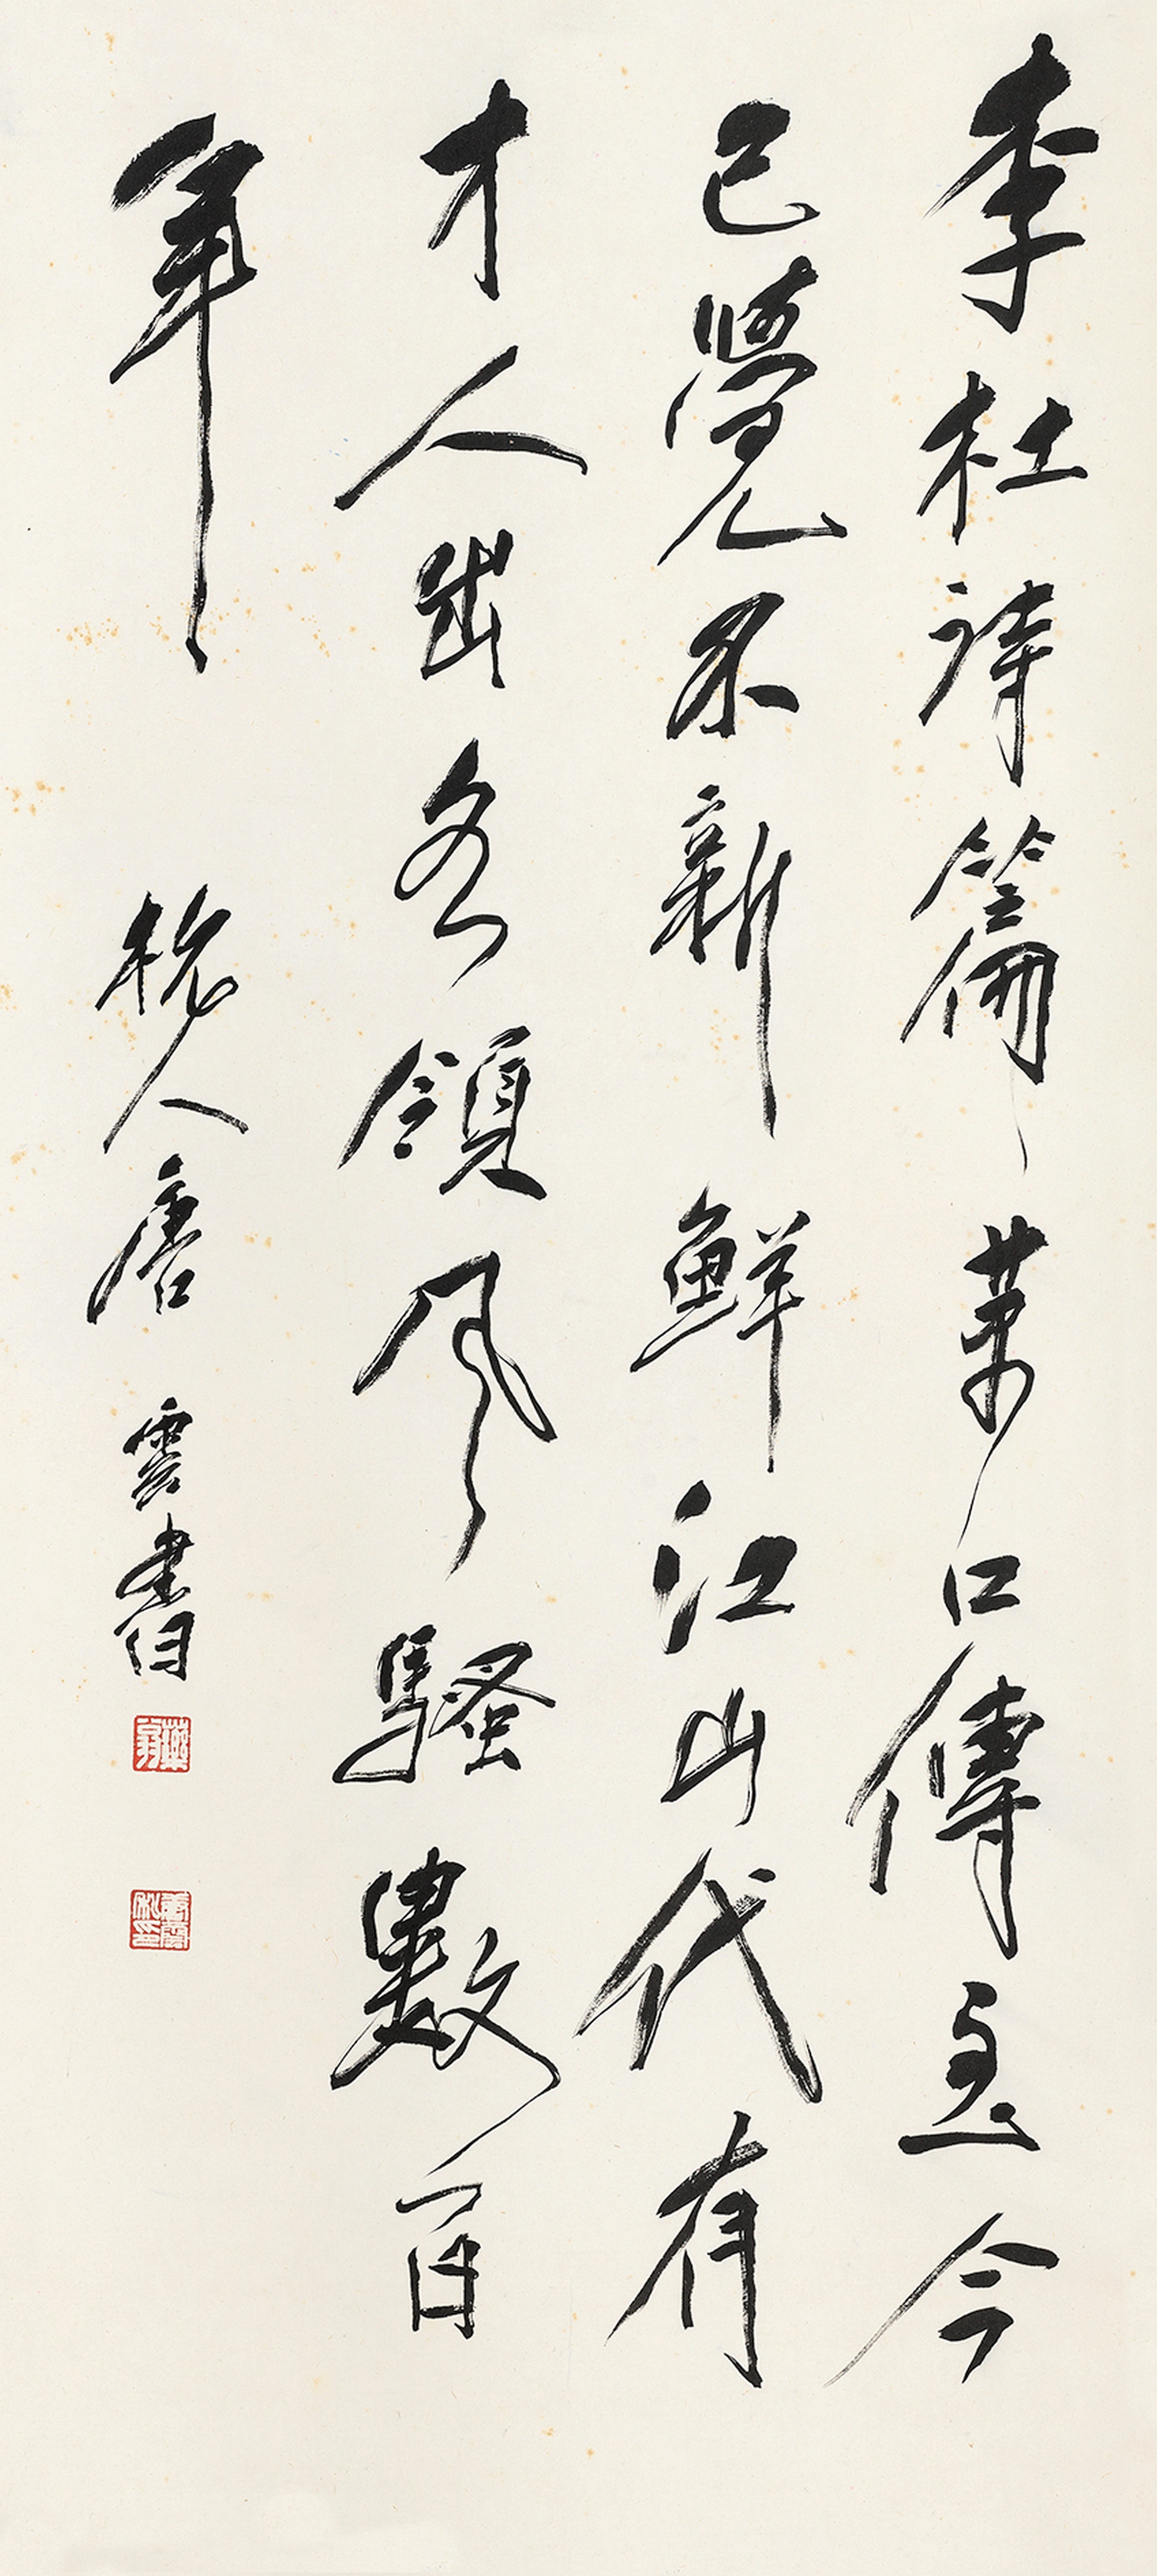 李杜詩篇萬口傳至今
已覺不新鮮江山代有
才人出各領風騷數百
年
杭人唐雲書
藥翁